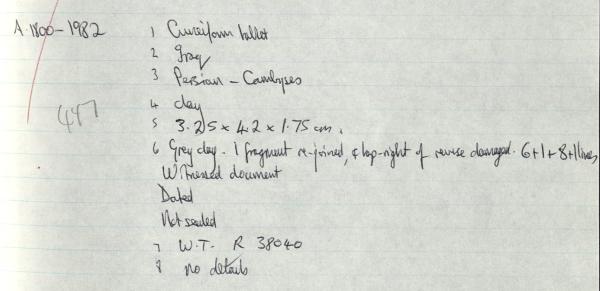 A. 1800-1982
1 Cuneiform tablet
2 Iraq
3 Persian - Cambyses
447
4 clay
5 3.25 x 4.2 x 1.75 cm.
6 Grey clay. 1 fragment re-joined, & top-right of reverse damaged. 6+1+8+1 lines,
Witnessed document
Dated
Not sealed
7 W.T. R 38040
8 no details